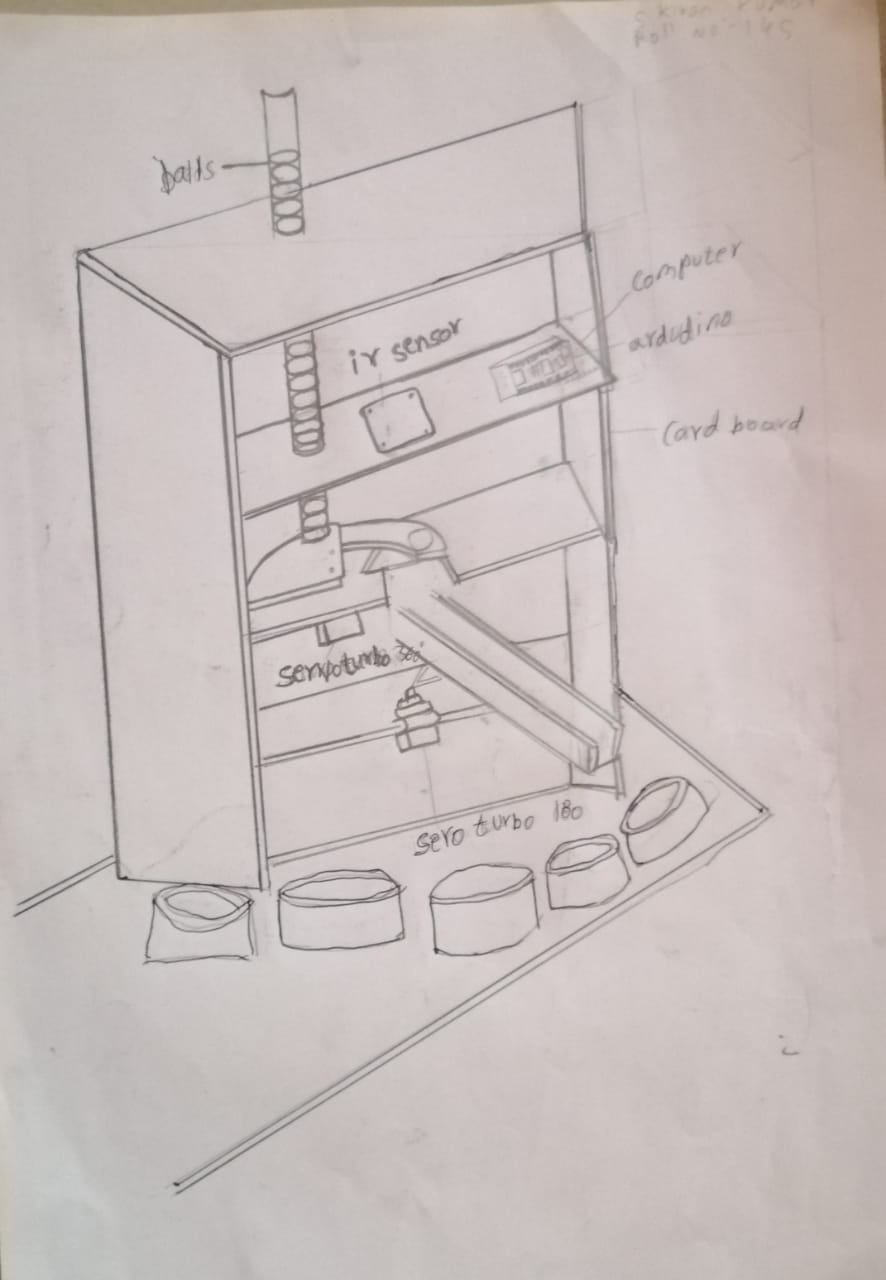 S Kiran Kumar
Roll No - 145
balls
computer
ir sensor
ardudino
card board
servoturbo 360°
sero turbo 180